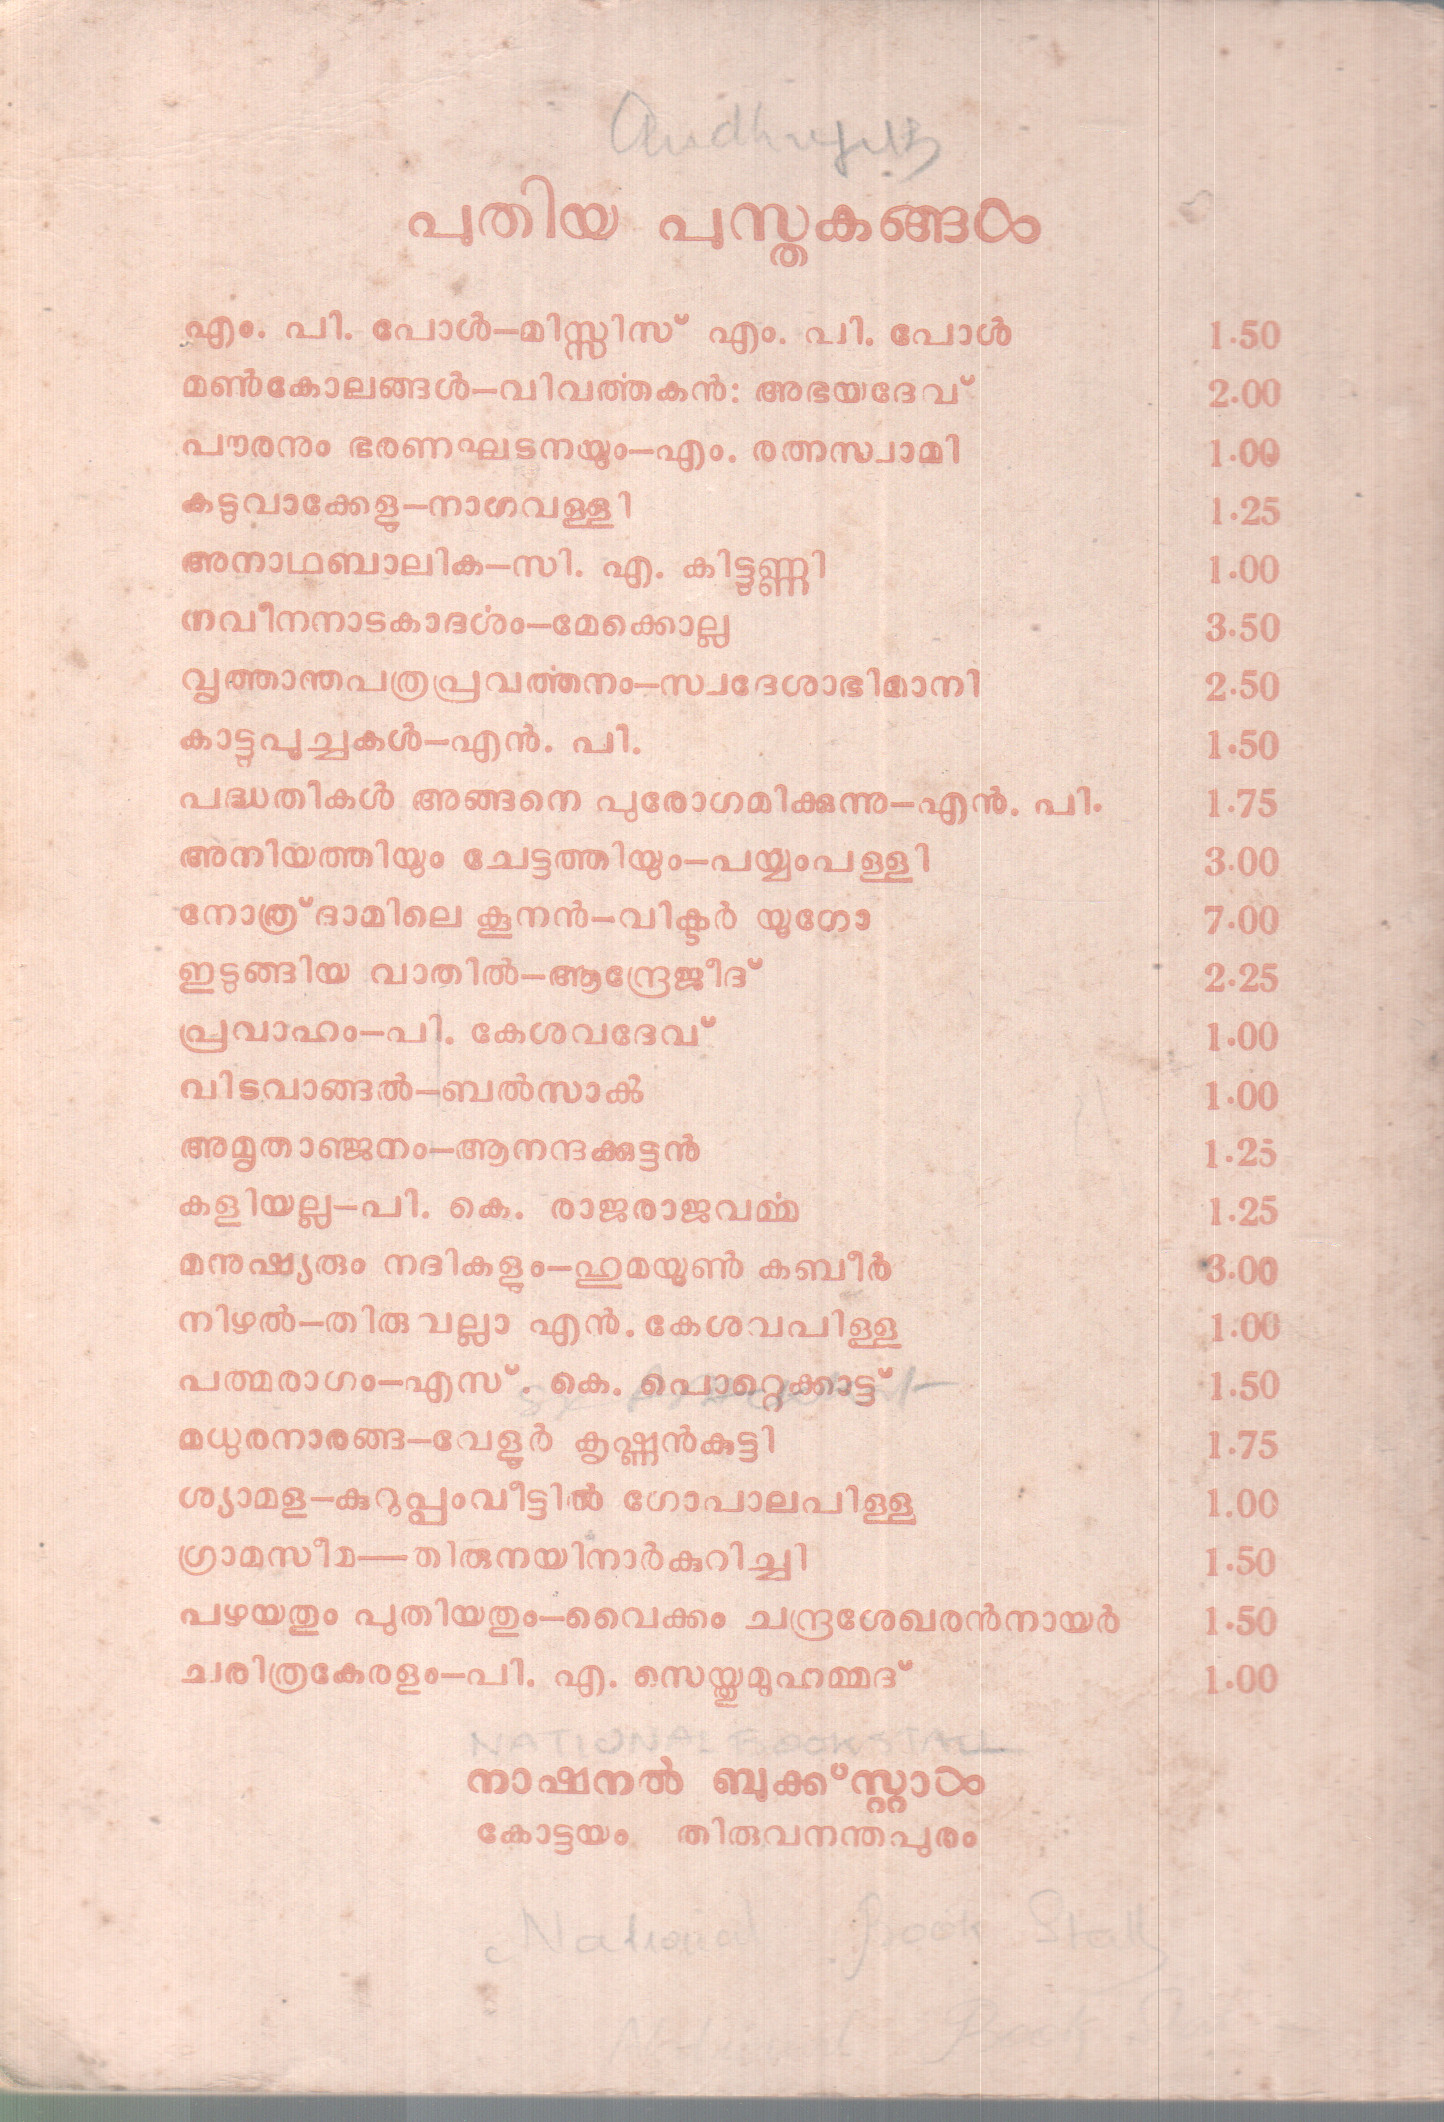 പുതിയ പുസ്തകങ്ങൾ
എം. പി. പോൾ—മിസ്സിസ് എം. പി. പോൾ 1·50
മൺകോലങ്ങൾ—വിവൎത്തകൻ: അഭയദേവ് 2·00
പൗരനും ഭരണഘടനയും—എം. രത്നസ്വാമി 1·00
കടുവാക്കേളു—നാഗവള്ളി 1·25
അനാഥബാലിക—സി. എ. കിട്ടുണ്ണി 1·00
നവീനനാടകാദൎശം—മേക്കൊല്ല 3·50
വൃത്താന്തപത്രപ്രവൎത്തനം—സ്വദേശാഭിമാനി 2·50
കാട്ടുപൂച്ചകൾ—എൻ. പി. 1·50
പദ്ധതികൾ അങ്ങനെ പുരോഗമിക്കുന്നു—എൻ. പി. 1·75
അനിയത്തിയും ചേട്ടത്തിയും—പയ്യംപള്ളി 3.00
നോത്ര്ദാമിലെ കൂനൻ—വിക്ടർ യൂഗോ 7·00
ഇടുങ്ങിയ വാതിൽ—ആന്ദ്രേജീദ് 2·25
പ്രവാഹം—പി. കേശവദേവ് 1·00
വിടവാങ്ങൽ—ബൽസാൿ 1·00
അമൃതാഞ്ജനം—ആനന്ദക്കുട്ടൻ 1·25
കളിയല്ല—പി. കെ. രാജരാജവൎമ്മ 1.25
മനുഷ്യരും നദികളും—ഹുമയൂൺ കബീർ 3·00
നിഴൽ—തിരുവല്ലാ എൻ. കേശവപിള്ള 1·00
പത്മരാഗം—എസ്. കെ. പൊറ്റെക്കാട്ട് 1·50
മധുരനാരങ്ങ—വേളൂർ കൃഷ്ണൻകുട്ടി 1·75
ശ്യാമള—കുറുപ്പംവീട്ടിൽ ഗോപാലപിള്ള 1.00
ഗ്രാമസീമ—തിരുനയിനാർകുറിച്ചി 1·50
പഴയതും പുതിയതും—വൈക്കം ചന്ദ്രശേഖരൻനായർ 1·50
ചരിത്രകേരളം—പി. എ. സെയ്തുമുഹമ്മദ് 1·00
NATIONAL BOOK STALL
നാഷനൽ ബുക്ക്സ്റ്റാൾ
കോട്ടയം തിരുവനന്തപുരം
National Book Stall
National Book